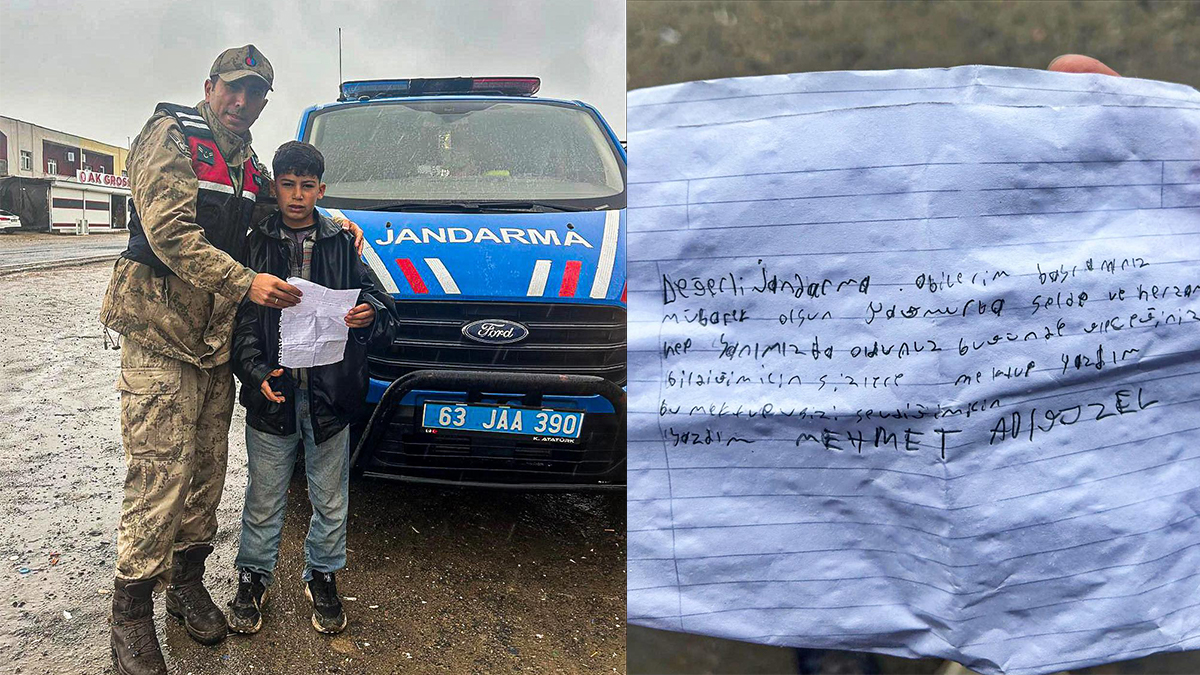 AK GROS
JANDARMA
Ford
63 JAA 390
K. ATATÜRK
Değerli Jandarma abilerim bayramınız
mübarek olsun yağmurda selde ve herzam
hep yanımızda oldunuz bugünde
bildiğim için sizlere mektup yazdım
bu mektubu sizi sevdiğim için
yazdım MEHMET ADIGUZEL